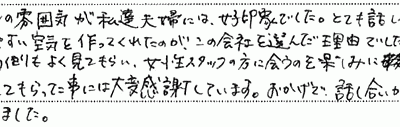 の雰囲気が私達夫婦には、好印象でした。とても話し
やすい空気を作ってくれたのがこの会社を選んだ理由でした
もよく見てもらい、女性スタッフの方に会うのを楽しみに
てもらった事には大変感謝しています。おかげで、話し合いが
ました。